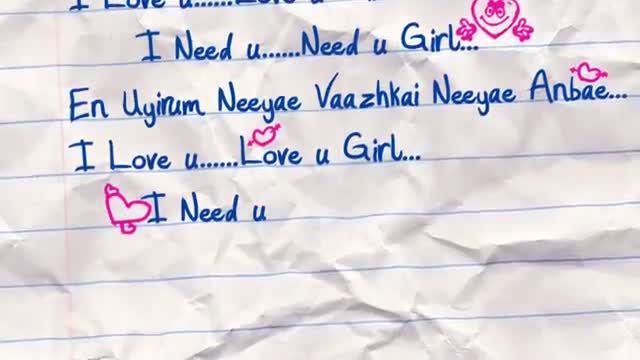 I Love u......Love u
I Need u......Need u Girl...
En Uyirum Neeyae Vaazhkai Neeyae Anbae...
I Love u......Love u Girl...
I Need u